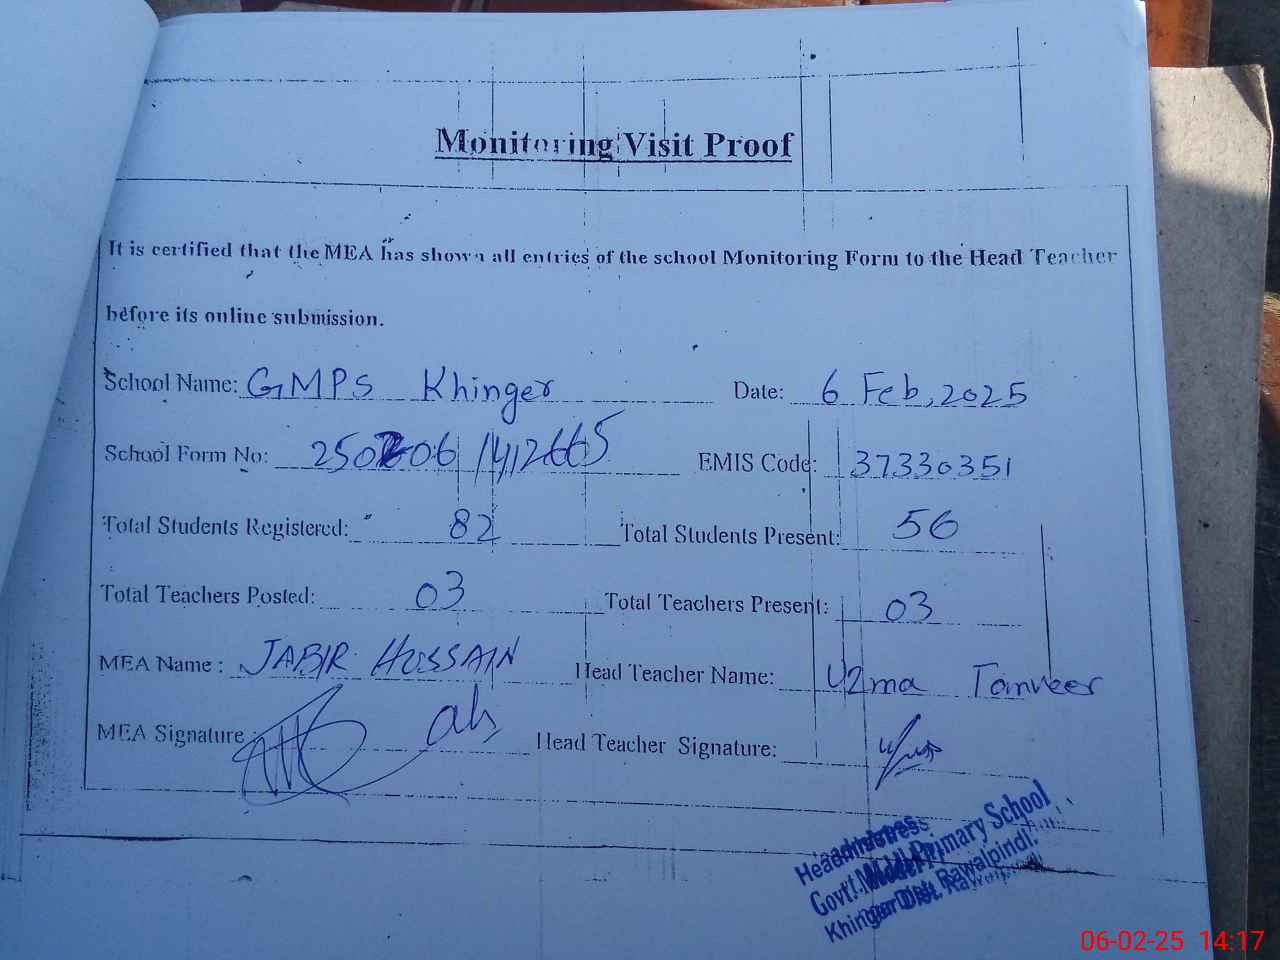 Monitoring Visit Proof
It is certified that the MEA has shown all entries of the school Monitoring Form to the Head Teacher
before its online submission.
School Name: GMPS Khinger Date: 6 Feb, 2025
School Form No: 250206 1412665 EMIS Code: 37330351
Total Students Registered: 82 Total Students Present: 56
Total Teachers Posted: 03 Total Teachers Present: 03
MEA Name : JABIR HUSSAIN Head Teacher Name: Uzma Tanveer
MEA Signature : Head Teacher Signature:
Headmistress
Govt. Model Primary School
Khinger Distt. Rawalpindi.
06-02-25 14:17